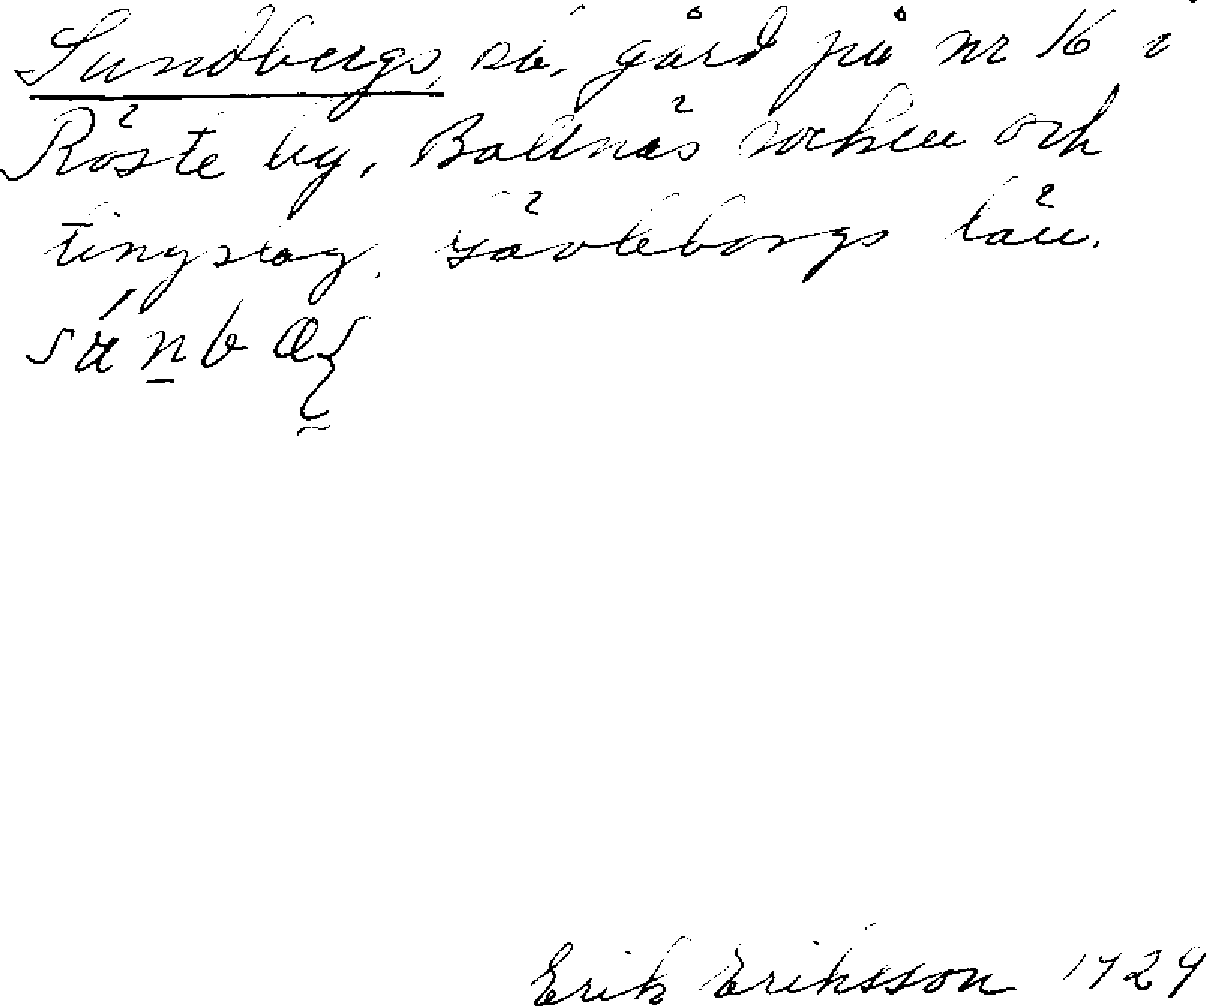 Sundbergs, sö. gård på nr 16 i
Röste by, Bollnäs socken och
tingslag. Gävleborgs län.
Erik Eriksson 1729